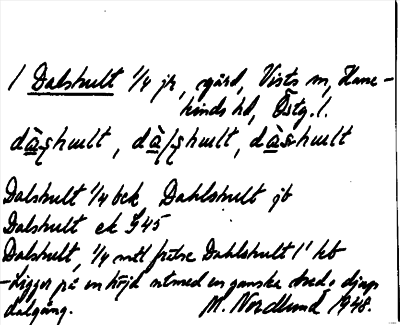 1 Dalshult 1/4 jr, gård, Vists sn, Hane-
kinds hd, Östg. l.
dàshult, dàlshult, dàshult
Dalshult 1/4 bek, Dahlshult jb
Dalshult ek 945
Dalshult, 1/4 mtl frälse Dahlshult 1' hb
Ligger på en höjd utmed en ganska bred o djup
dalgång. M. Nordlund 1948.